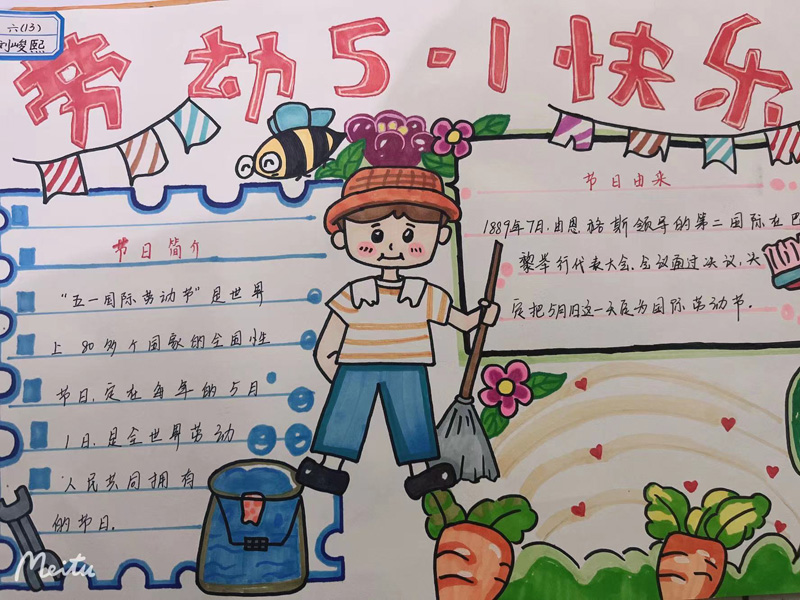 六(13)
刘峻熙
劳动5·1快乐
节日简介
“五一国际劳动节”是世界
上80多个国家的全国性
节日,定在每年的5月
1日,是全世界劳动
人民共同拥有
的节日.
节日由来
1889年7月,由恩格斯领导的第二国际在巴
黎举行代表大会.会议通过决议,决
定把5月1日这一天定为国际劳动节.
Meitu